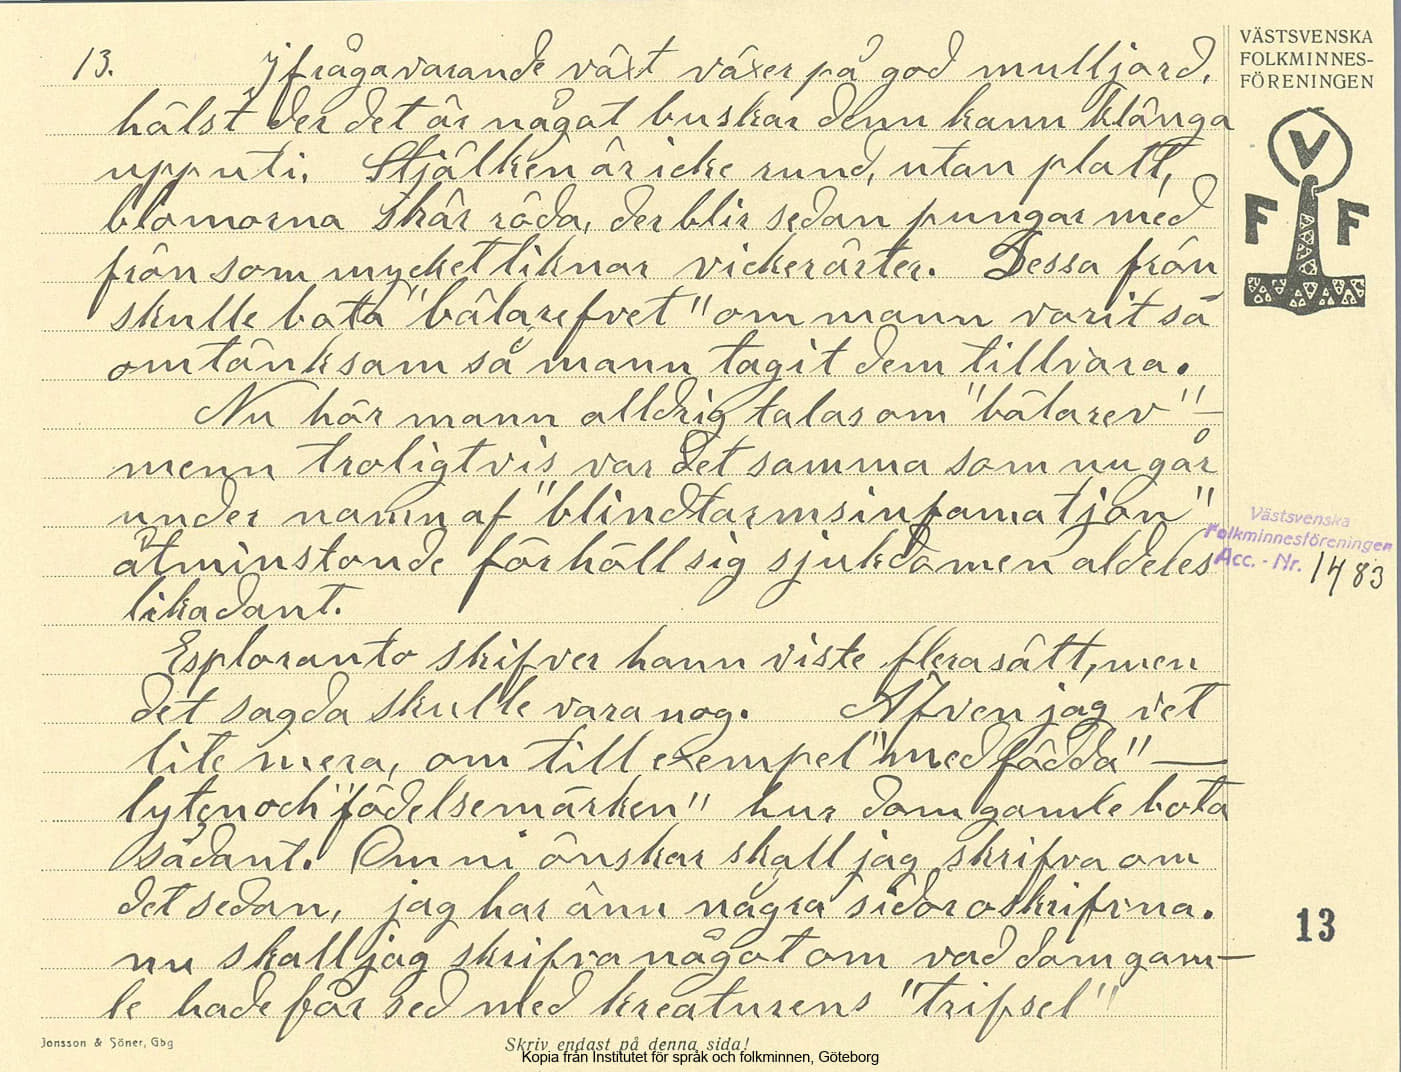 13.
Ifrågavarande växt växer på god mulljord,
hälst der det är något buskar denn kann klänga
upp uti. Stjälken är icke rund, utan platt,
blomorna skär röda, der blir sedan pungar med
frön som mycket liknar vickerärter. Dessa frön
skulle bota "bålarefvet" om mann varit så
omtänksam så mann tagit dem tillvara.
Nu hör mann alldrig talas om "bålarev" —
menn troligtvis var det samma som nu går
under namn af "blindtarmsinfamatjon"
åtminstonde förhöll sig sjukdomen aldeles
likadant.
Esploranto skrifver hann viste flera sätt, men
det sagda skulle vara nog. Äfven jag vet
lite mera, om till exempel "medfödda" —
lyten och "födelsemärken" hur dom gamle bota
sådant. Om ni önskar skall jag skrifva om
det sedan, jag har änn några sidor oskrifvna.
nu skall jag skrifva något om vad dom gam—
le hade för sed med kreaturens "trifsel"
VÄSTSVENSKA
FOLKMINNES-
FÖRENINGEN
V
F F
Västsvenska
Folkminnesföreningen
Acc. - Nr. 1483
13
Jonsson & Söner, Gbg
Skriv endast på denna sida!
Kopia från Institutet för språk och folkminnen, Göteborg